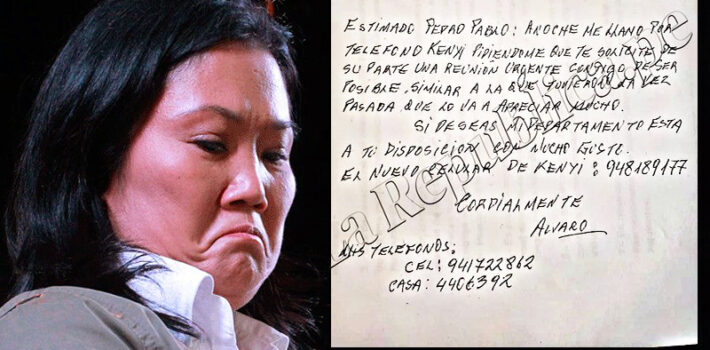 ESTIMADO PEDRO PABLO: ANOCHE ME LLAMO POR
TELEFONO KENYI PIDIENDOME QUE TE SOLICITE DE
SU PARTE UNA REUNION URGENTE CONTIGO DE SER
POSIBLE, SIMILAR A LA QUE TUVIERON LA VEZ
PASADA QUE LO VA A APRECIAR MUCHO.
SI DESEAS MI DEPARTAMENTO ESTA
A TU DISPOSICION CON MUCHO GUSTO.
EL NUEVO CELULAR DE KENYI: 948189177
CORDIALMENTE
ALVARO
MIS TELEFONOS:
CEL: 941722862
CASA: 4406392
La Republica.pe